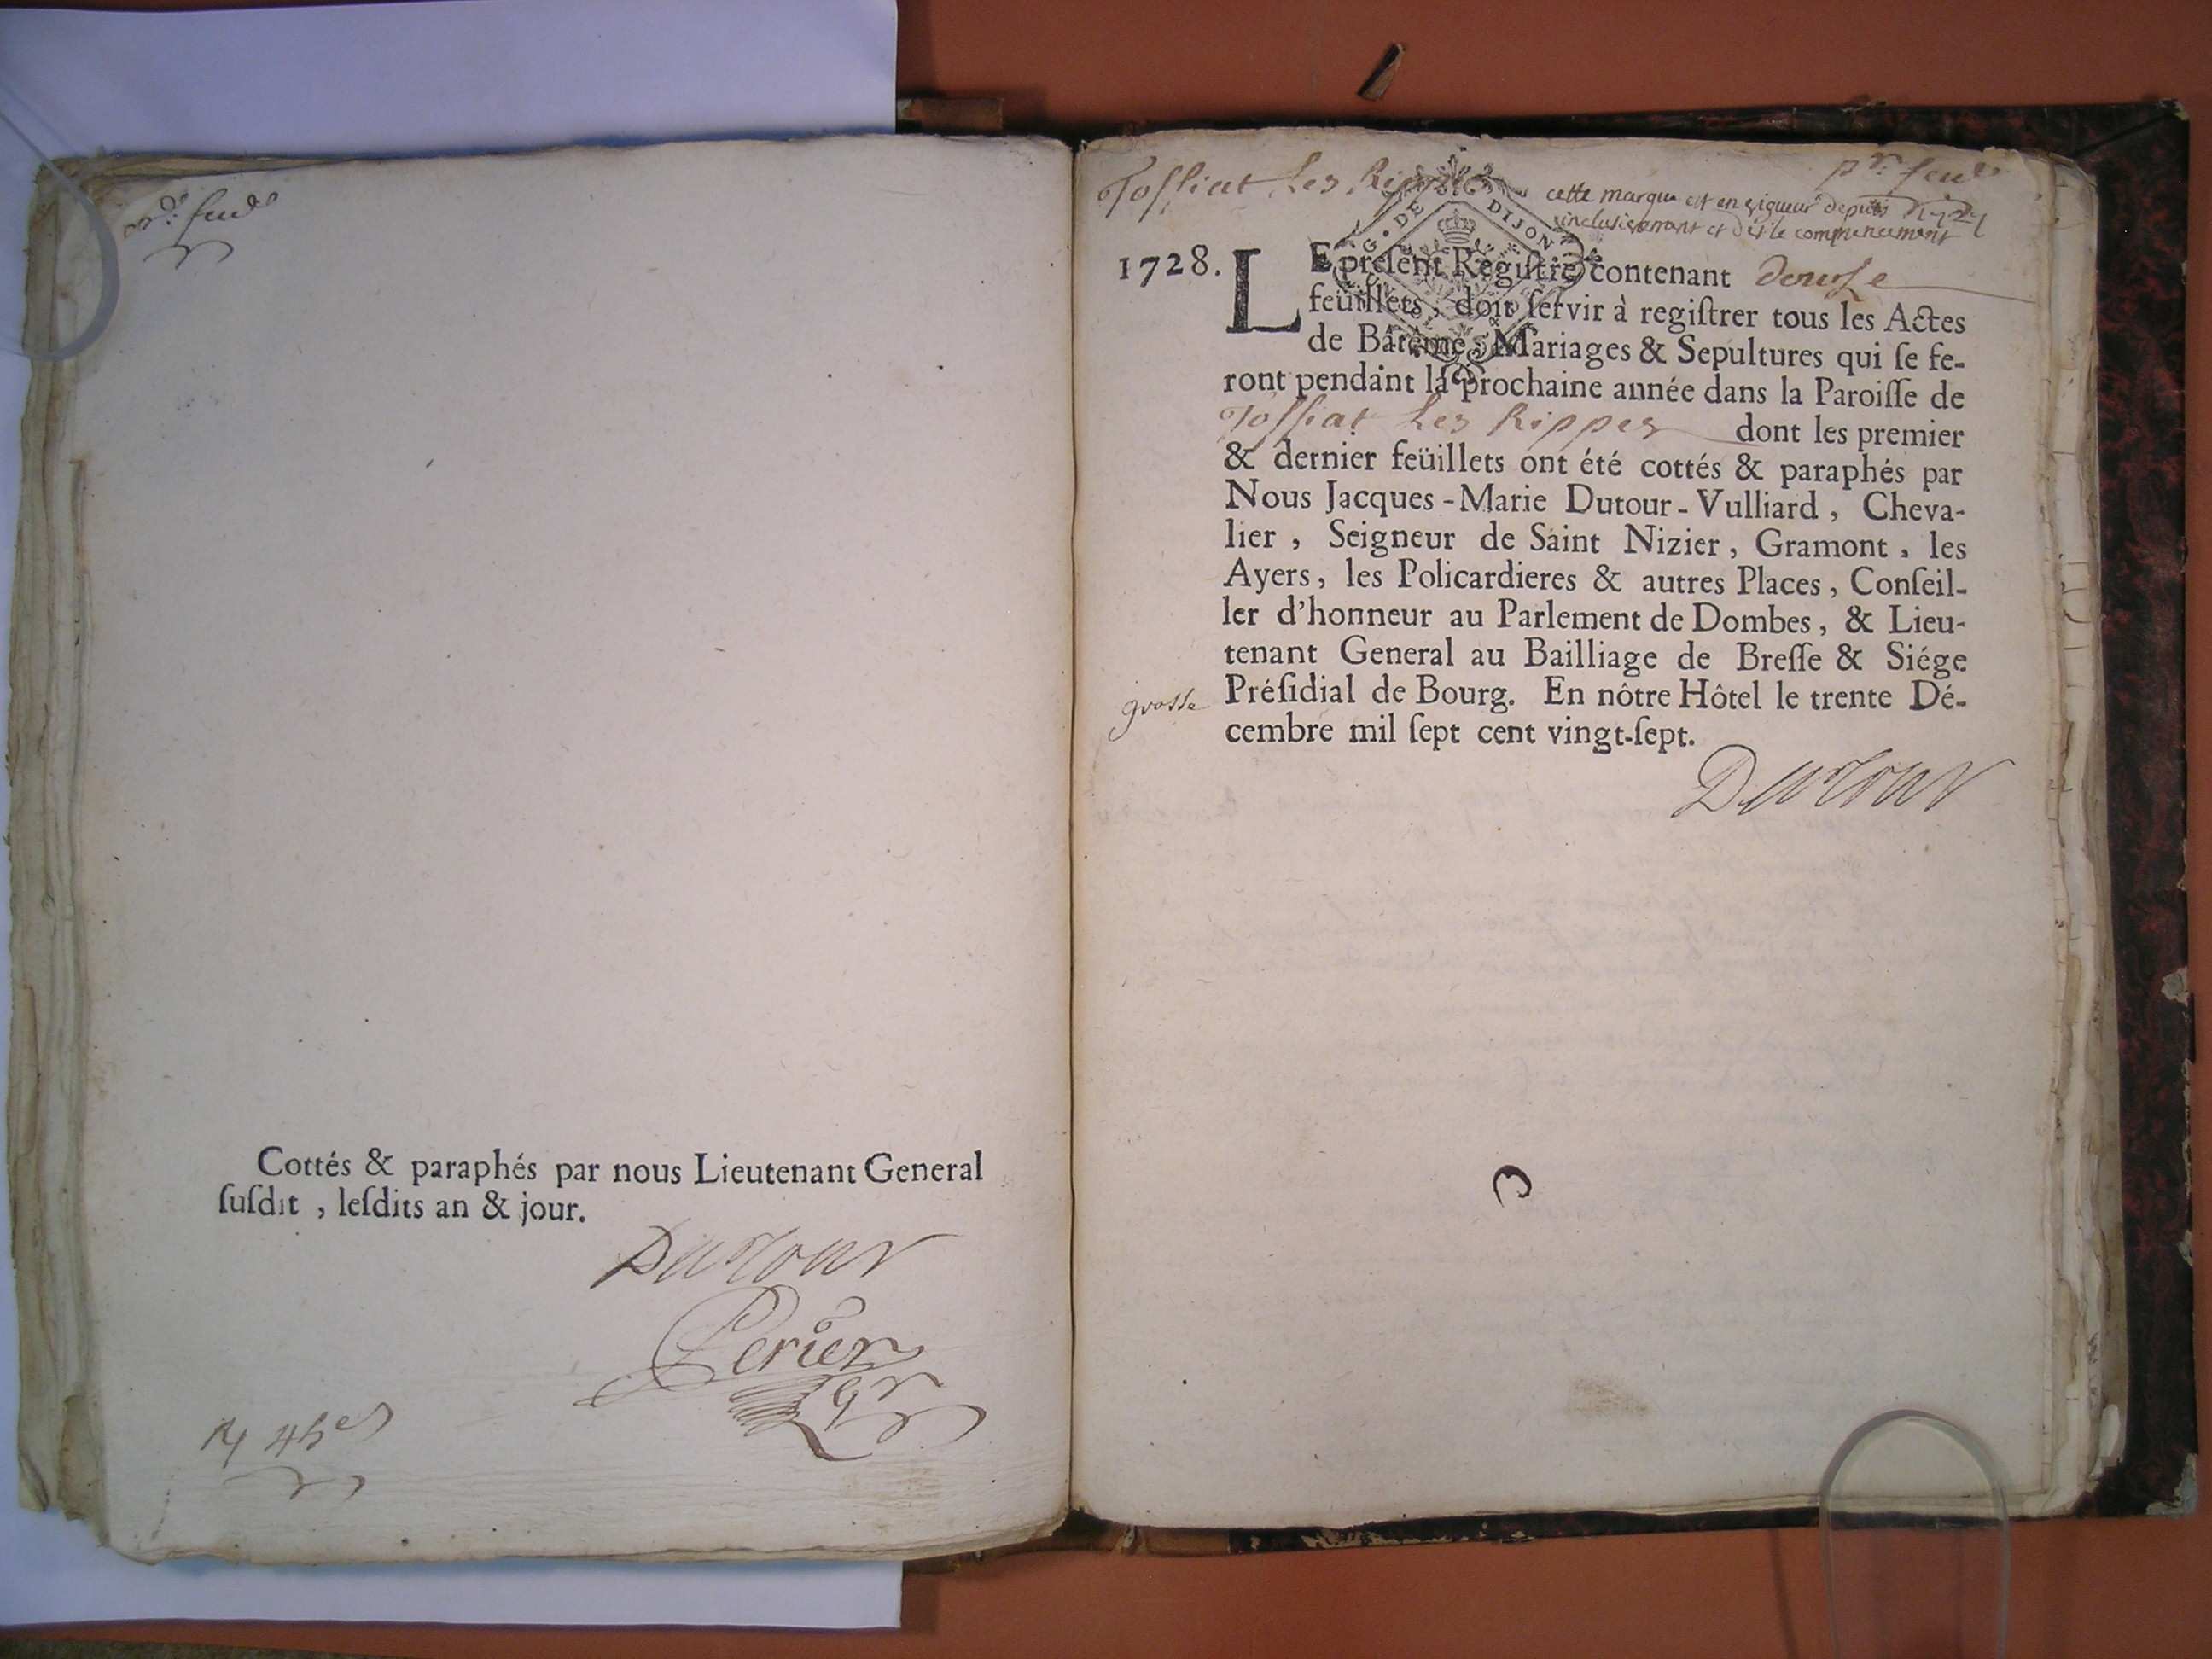 Cottés & paraphés par nous Lieutenant General
ſuſdit , leſdits an & jour.
Dutour
Perier
Toſſiat Les Rippes
cette marque est en vigueur depuis 1727
inclusivement et dès le commencement
G. DE DIJON
1728.
LE preſent Regiſtre contenant douſe
feüillets, doit ſervir à regiſtrer tous les Actes
de Batême, Mariages & Sepultures qui ſe fe-
ront pendant la prochaine année dans la Paroiſſe de
Toſſiat Les Rippes dont les premier
& dernier feüillets ont été cottés & paraphés par
Nous Jacques-Marie Dutour-Vulliard, Cheva-
lier, Seigneur de Saint Nizier, Gramont, les
Ayers, les Policardieres & autres Places, Conſeil-
ler d'honneur au Parlement de Dombes, & Lieu-
tenant General au Bailliage de Breſſe & Siége
grosse
Préſidial de Bourg. En nôtre Hôtel le trente Dé-
cembre mil ſept cent vingt-ſept.
Dutour